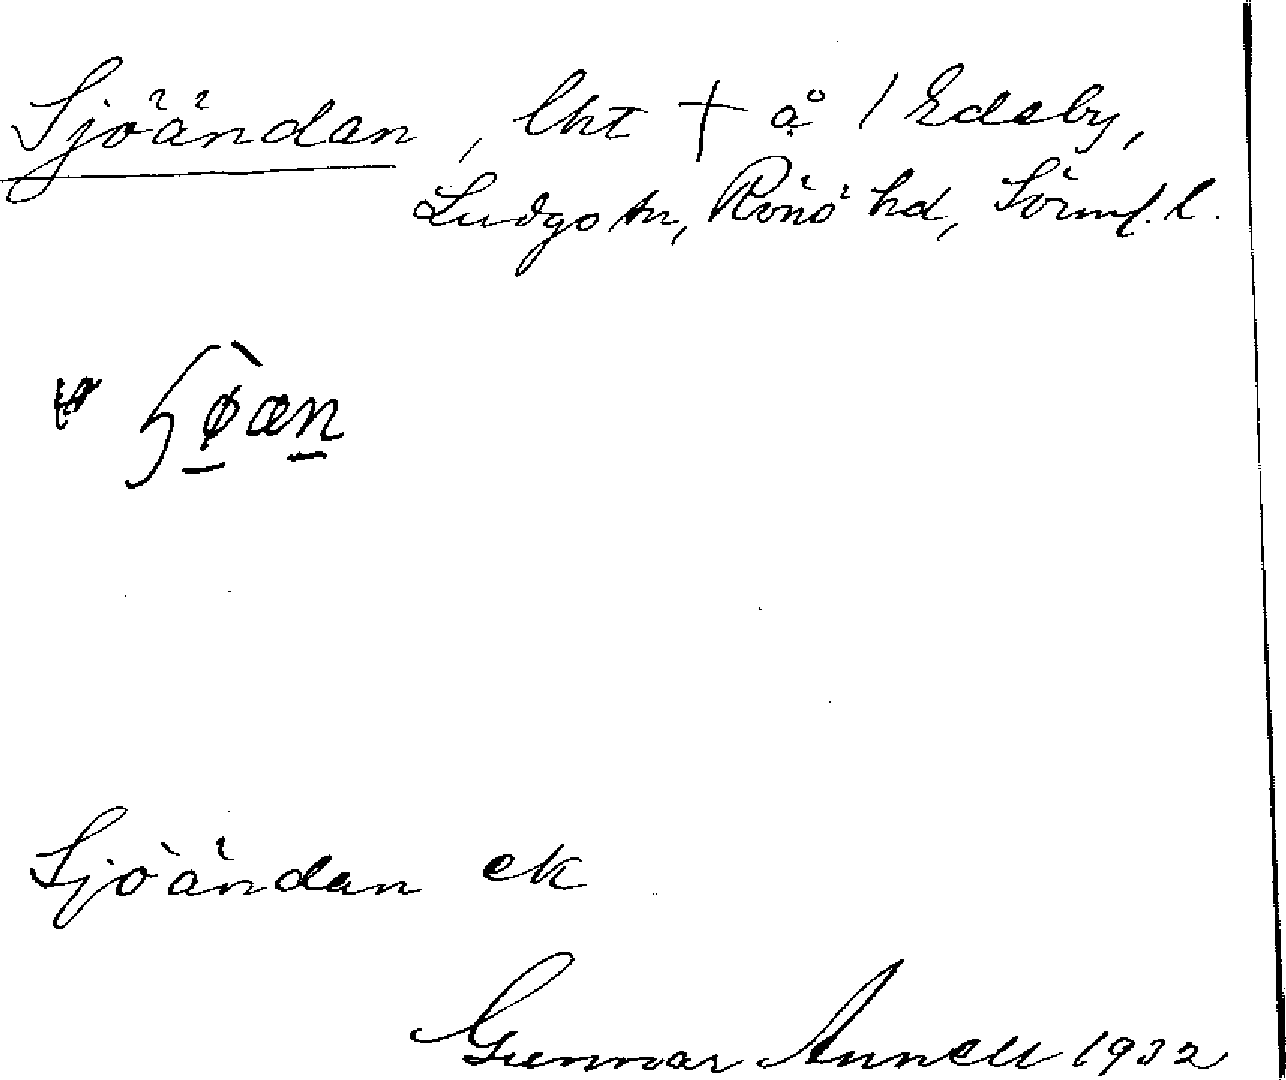 Sjöändan, lht † å / Edeby,
Ludgo sn, Rönö hd, Sörml. l.
Sjöändan ek
Gunnar Annell 1932